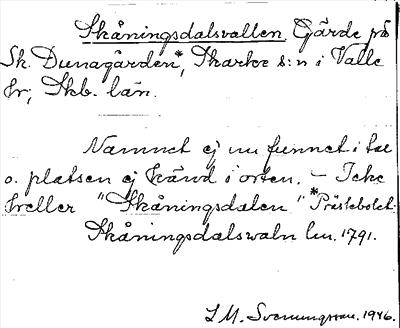 Skåningsdalsvallen, Gärde på
Sk. Dunagården*, Skarke s:n i Valle
hr; Skb. län.
Namnet ej nu funnet i tal
o. platsen ej känd i orten. – Icke
heller "Skåningsdalen" *Prästebolet.
Skåningsdalswaln Lm. 1791.
I. M. Svenungsson. 1946.